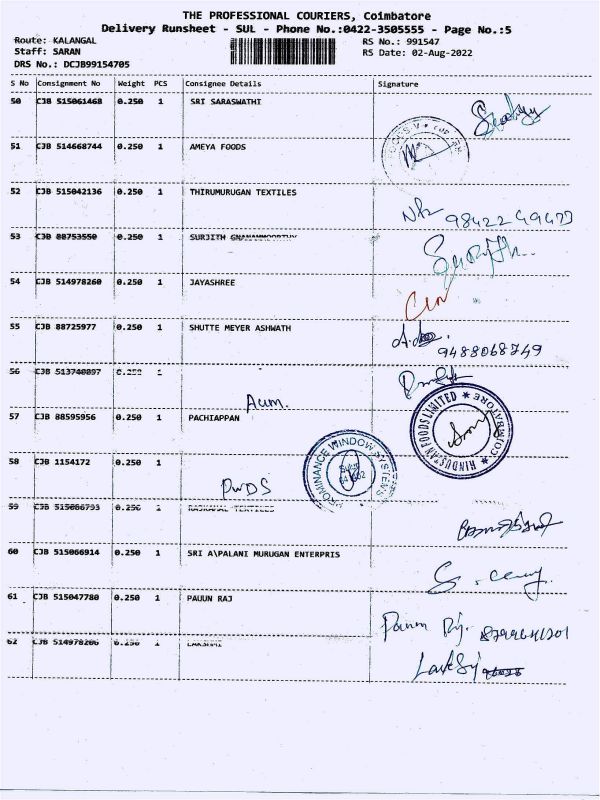 THE PROFESSIONAL COURIERS, Coimbatore
Delivery Runsheet - SUL - Phone No.:0422-3505555 - Page No.:5
Route: KALANGAL
RS No.: 991547
Staff: SARAN
RS Date: 02-Aug-2022
DRS No.: DCJB99154705
S No Consignment No Weight PCS Consignee Details Signature
50 CJB 515061468 0.250 1 SRI SARASWATHI
51 CJB 514668744 0.250 1 AMEYA FOODS
52 CJB 515042136 0.250 1 THIRUMURUGAN TEXTILES
53 CJB 88753550 0.250 1 SURJITH GNANAMOORTHY
54 CJB 514978260 0.250 1 JAYASHREE
55 CJB 88725977 0.250 1 SHUTTE MEYER ASHWATH
9488068749
56 CJB 513740897 0.250 1
Aum.
57 CJB 88595956 0.250 1 PACHIAPPAN
HINDUSTAN FOODS LIMITED * COIMBATORE *
58 CJB 1154172 0.250 1
PWDS
PROMINANCE WINDOW SYSTEMS
59 CJB 515066793 0.250 1 RAJKAMAL TEXTILES
60 CJB 515066914 0.250 1 SRI A\PALANI MURUGAN ENTERPRIS
61 CJB 515047780 0.250 1 PAUUN RAJ
62 CJB 514978206 0.250 1 LAKSHMI